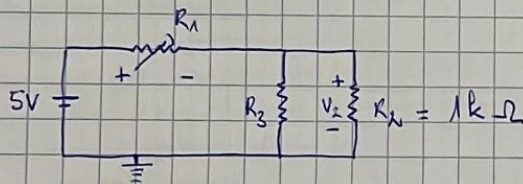 R1
+ -
5V
R3
+
V2
-
R2 = 1k Ω